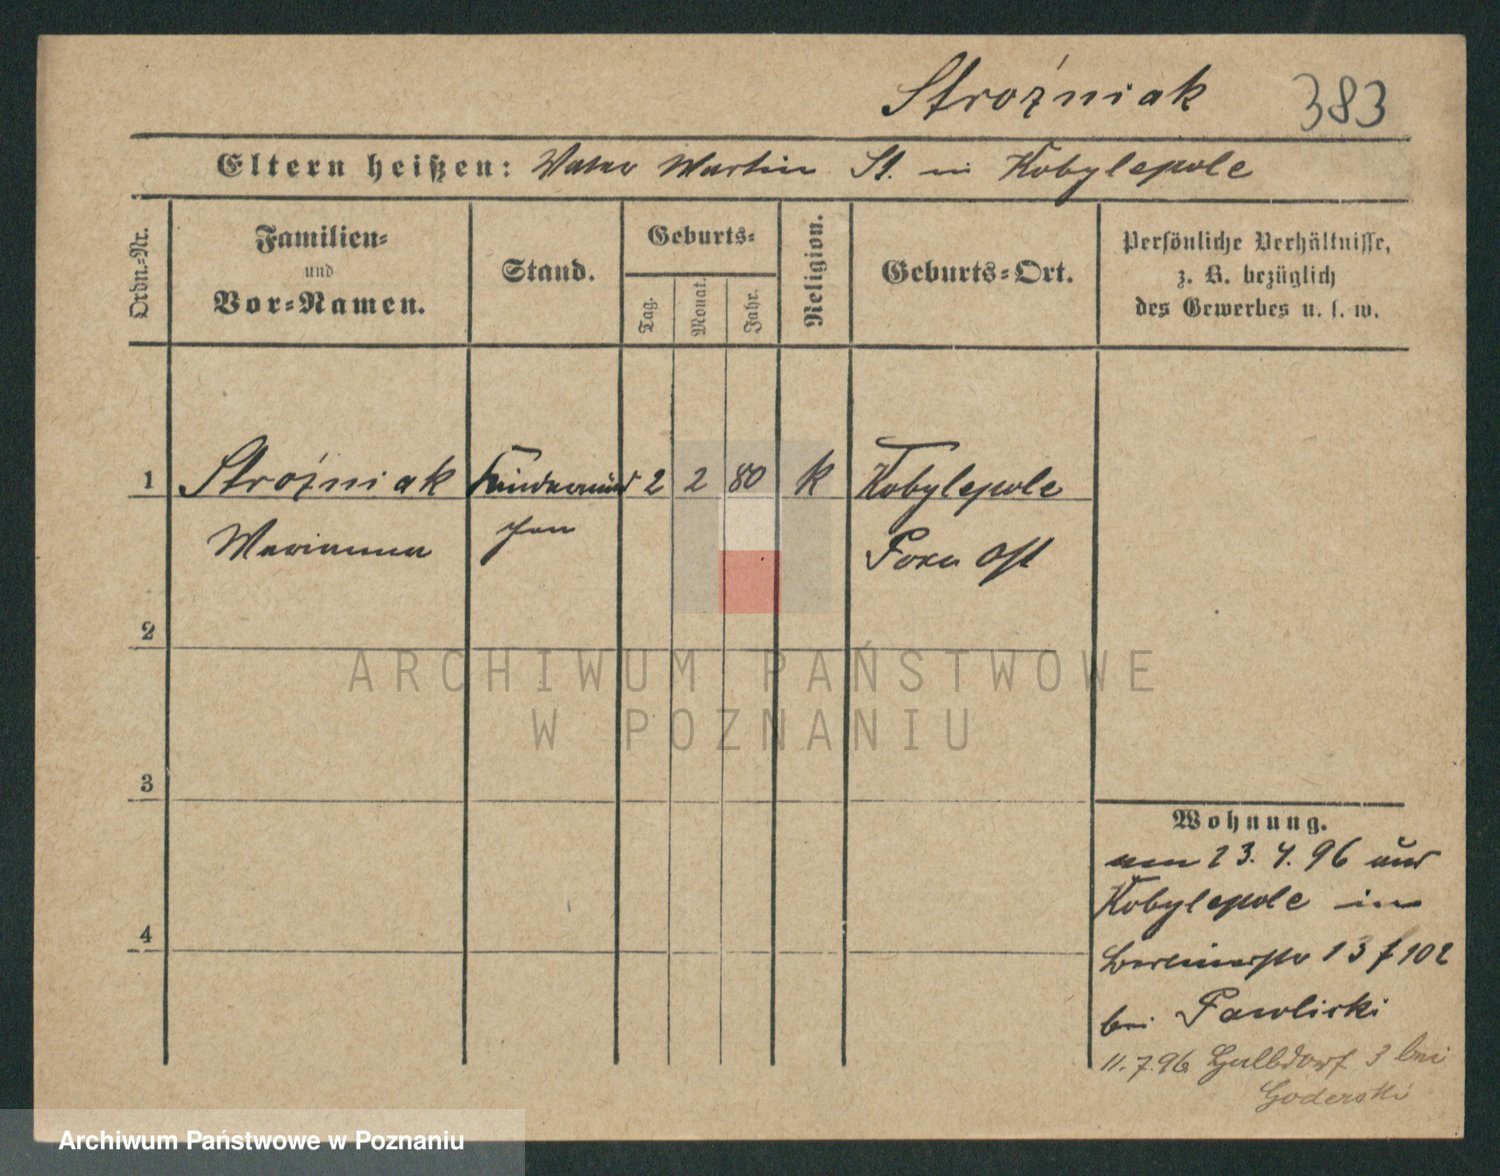 Stroźniak 383
Eltern heißen: Vater Martin St. in Kobylepole
Ordn.-Nr.
Familien-
und
Vor-Namen.
Stand.
Geburts-
Tag.
Monat.
Jahr.
Religion.
Geburts-Ort.
Persönliche Verhältnisse,
z. B. bezüglich
des Gewerbes u. s. w.
1 Stroźniak Kindermäd 2 2 80 k Kobylepole
Marianna chen Posen Ost
2
3
4
Wohnung.
am 23. 4. 96 aus
Kobylepole in
13 f 102
bei Pawlicki
11.7.96 Halbdorf 3 bei
Goderski
ARCHIWUM PAŃSTWOWE
W POZNANIU
Archiwum Państwowe w Poznaniu